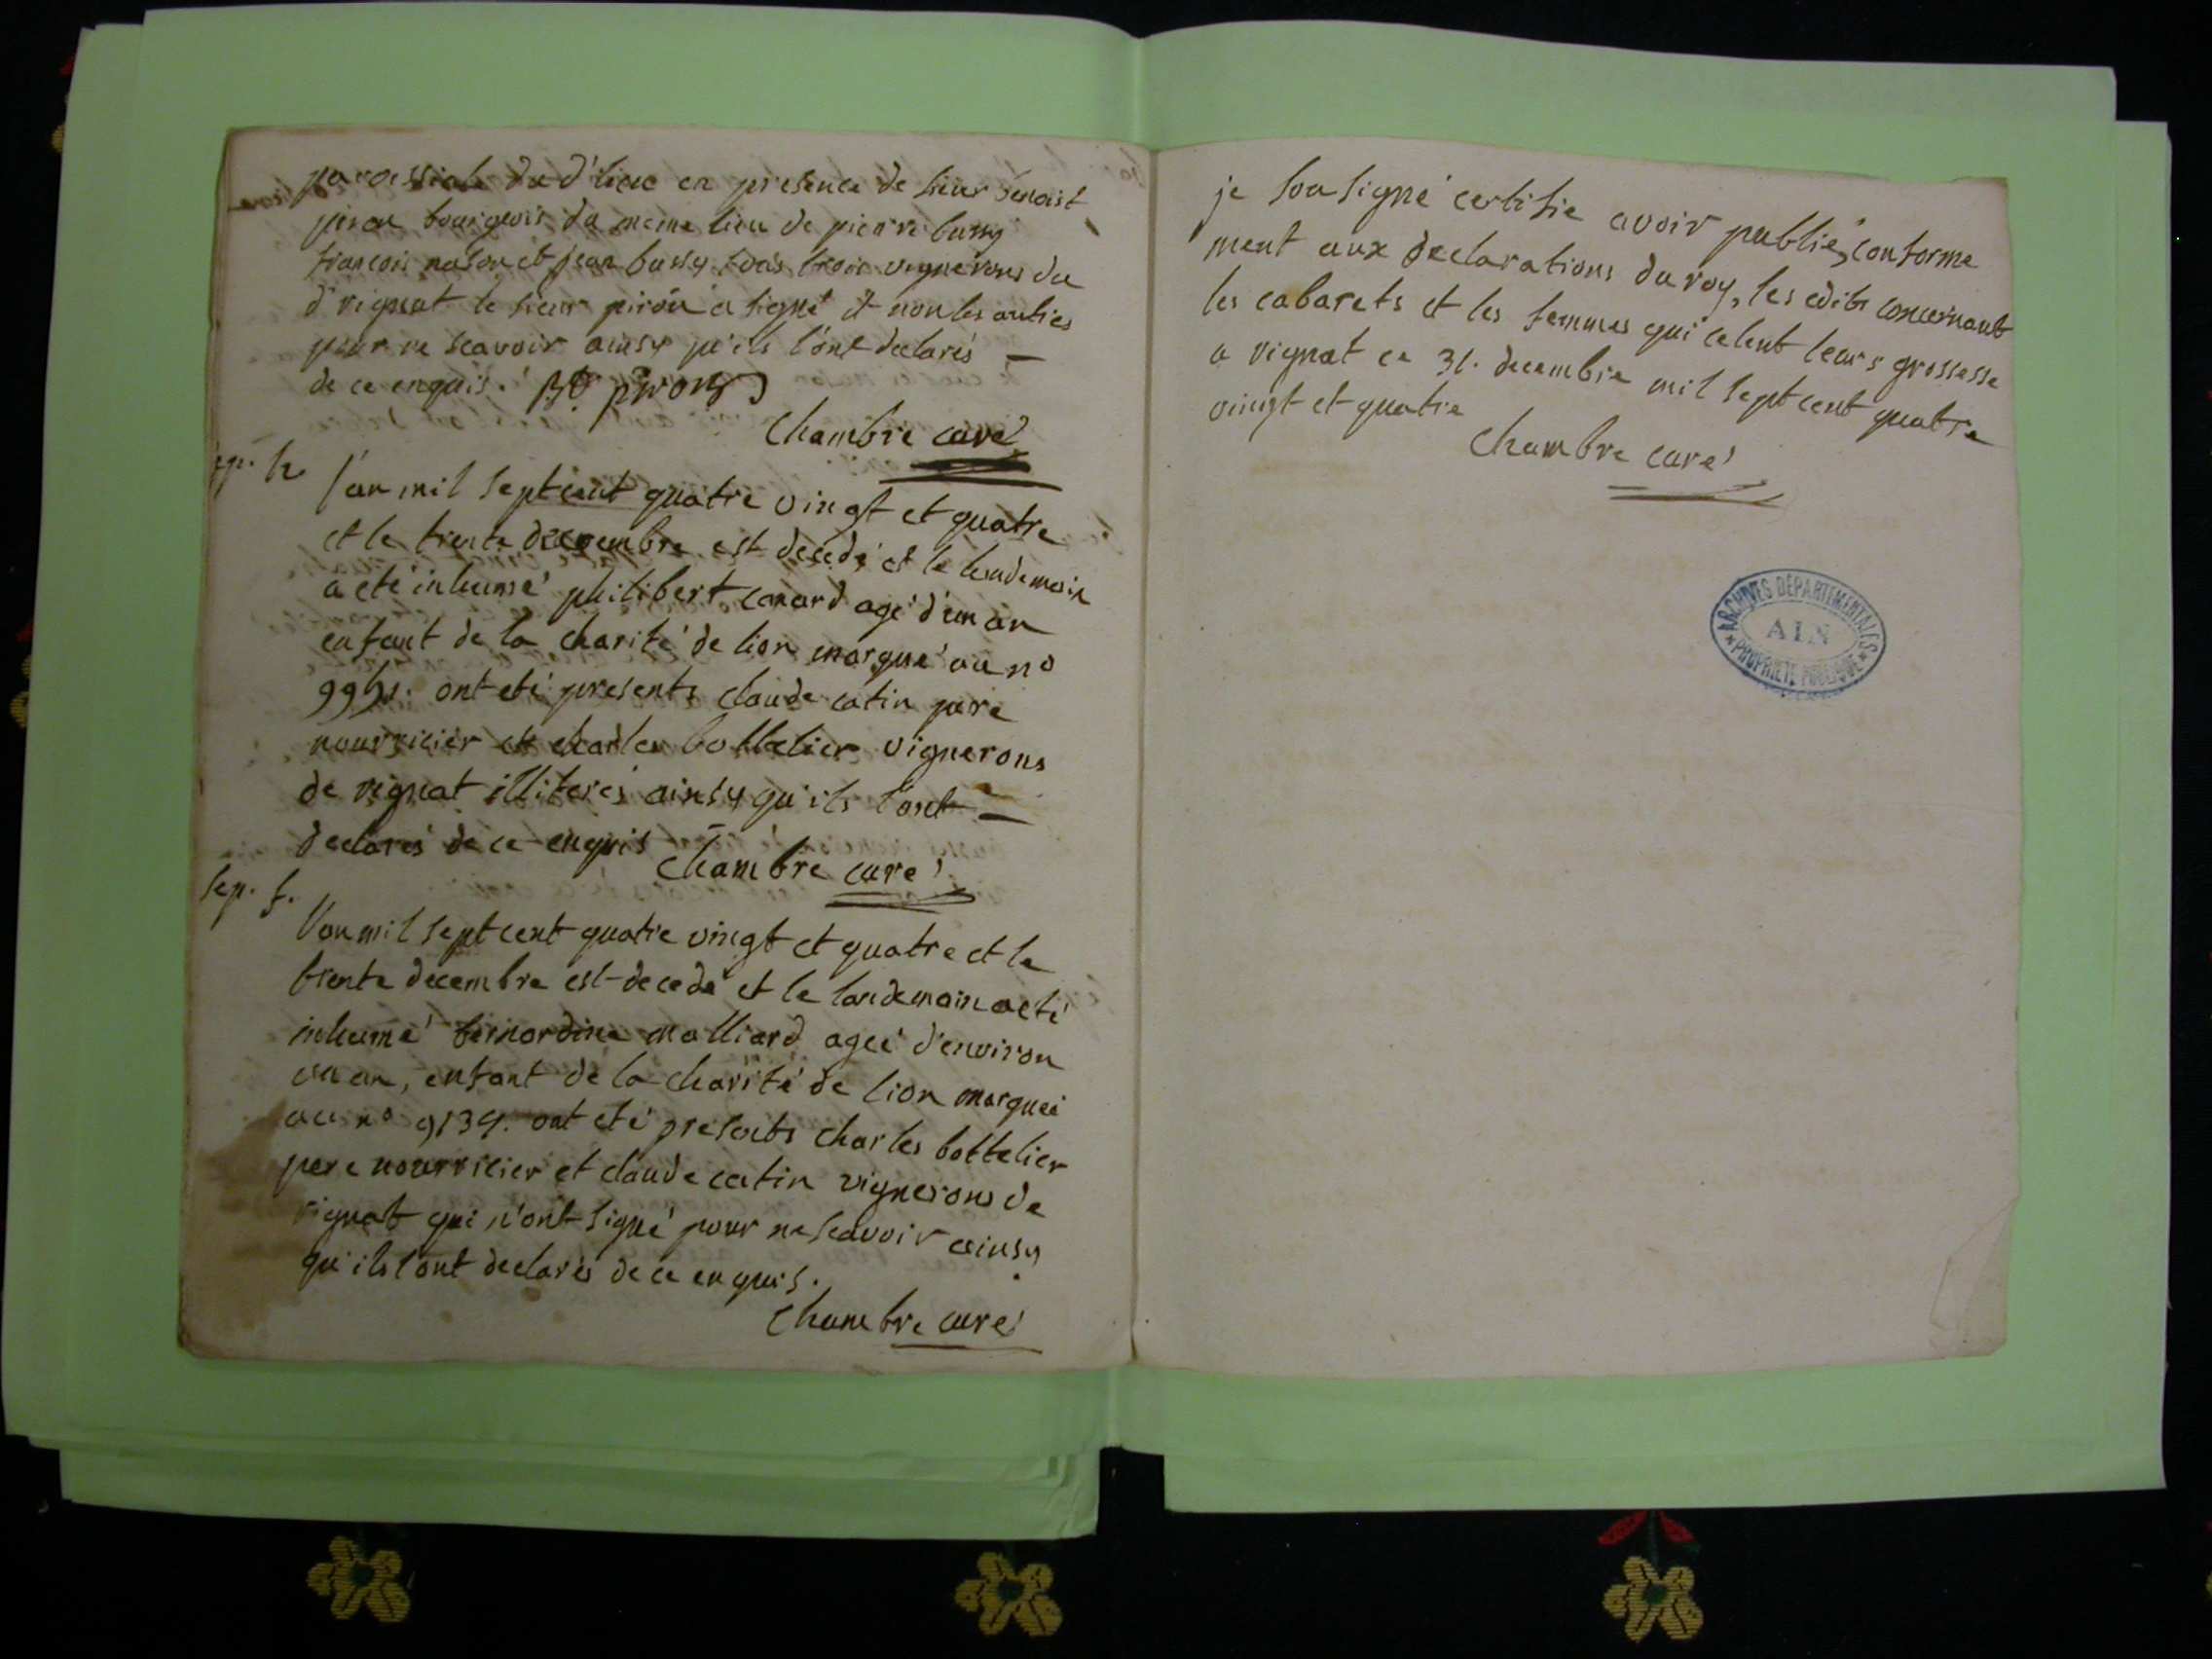 paroessiale du d' lieu en presence de sieur benoist
piron bourgeois du meme lieu de pierre bussy
francois nason et jean bussy tous trois vignerons du
d' vignat le sieur piron a signé et non les autres
pour ne scavoir ainsy qu'ils l'ont declarés –
de ce enquis. Bt piron
Chambre curé
sep. h
l'an mil septcent quatre vingt et quatre
et le trente decembre est decedé et le lendemain
a eté inhumé philibert conard agé d'un an
enfant de la charité de lion marqué au no
ont eté presents claude catin pere
nourricier et charles bottelier vignerons
de vignat illiterés ainsy qu'ils l'ont –
declarés de ce enquis –
Chambre curé
sep. f.
l'an mil sept cent quatre vingt et quatre et le
trente decembre est decedé et le landemain a eté
inhumé bernardine malliard ageé d'environ
un an, enfant de la charité de lion marqueé
au no 9139. ont eté presents charles bottelier
pere nourricier et claude catin vignerons de
vignat qui n'ont signé pour ne scavoir ainsy
qu'ils l'ont declarés de ce enquis.
Chambre curé
je sousigné certifie avoir publié, conforme
ment aux declarations du roy, les edits concernant
les cabarets et les femmes qui celent leurs grossesse
a vignat ce 31. decembre mil sept cent quatre
vingt et quatre
Chambre curé
ARCHIVES DÉPARTEMENTALES
AIN
PROPRIÉTÉ PUBLIQUE